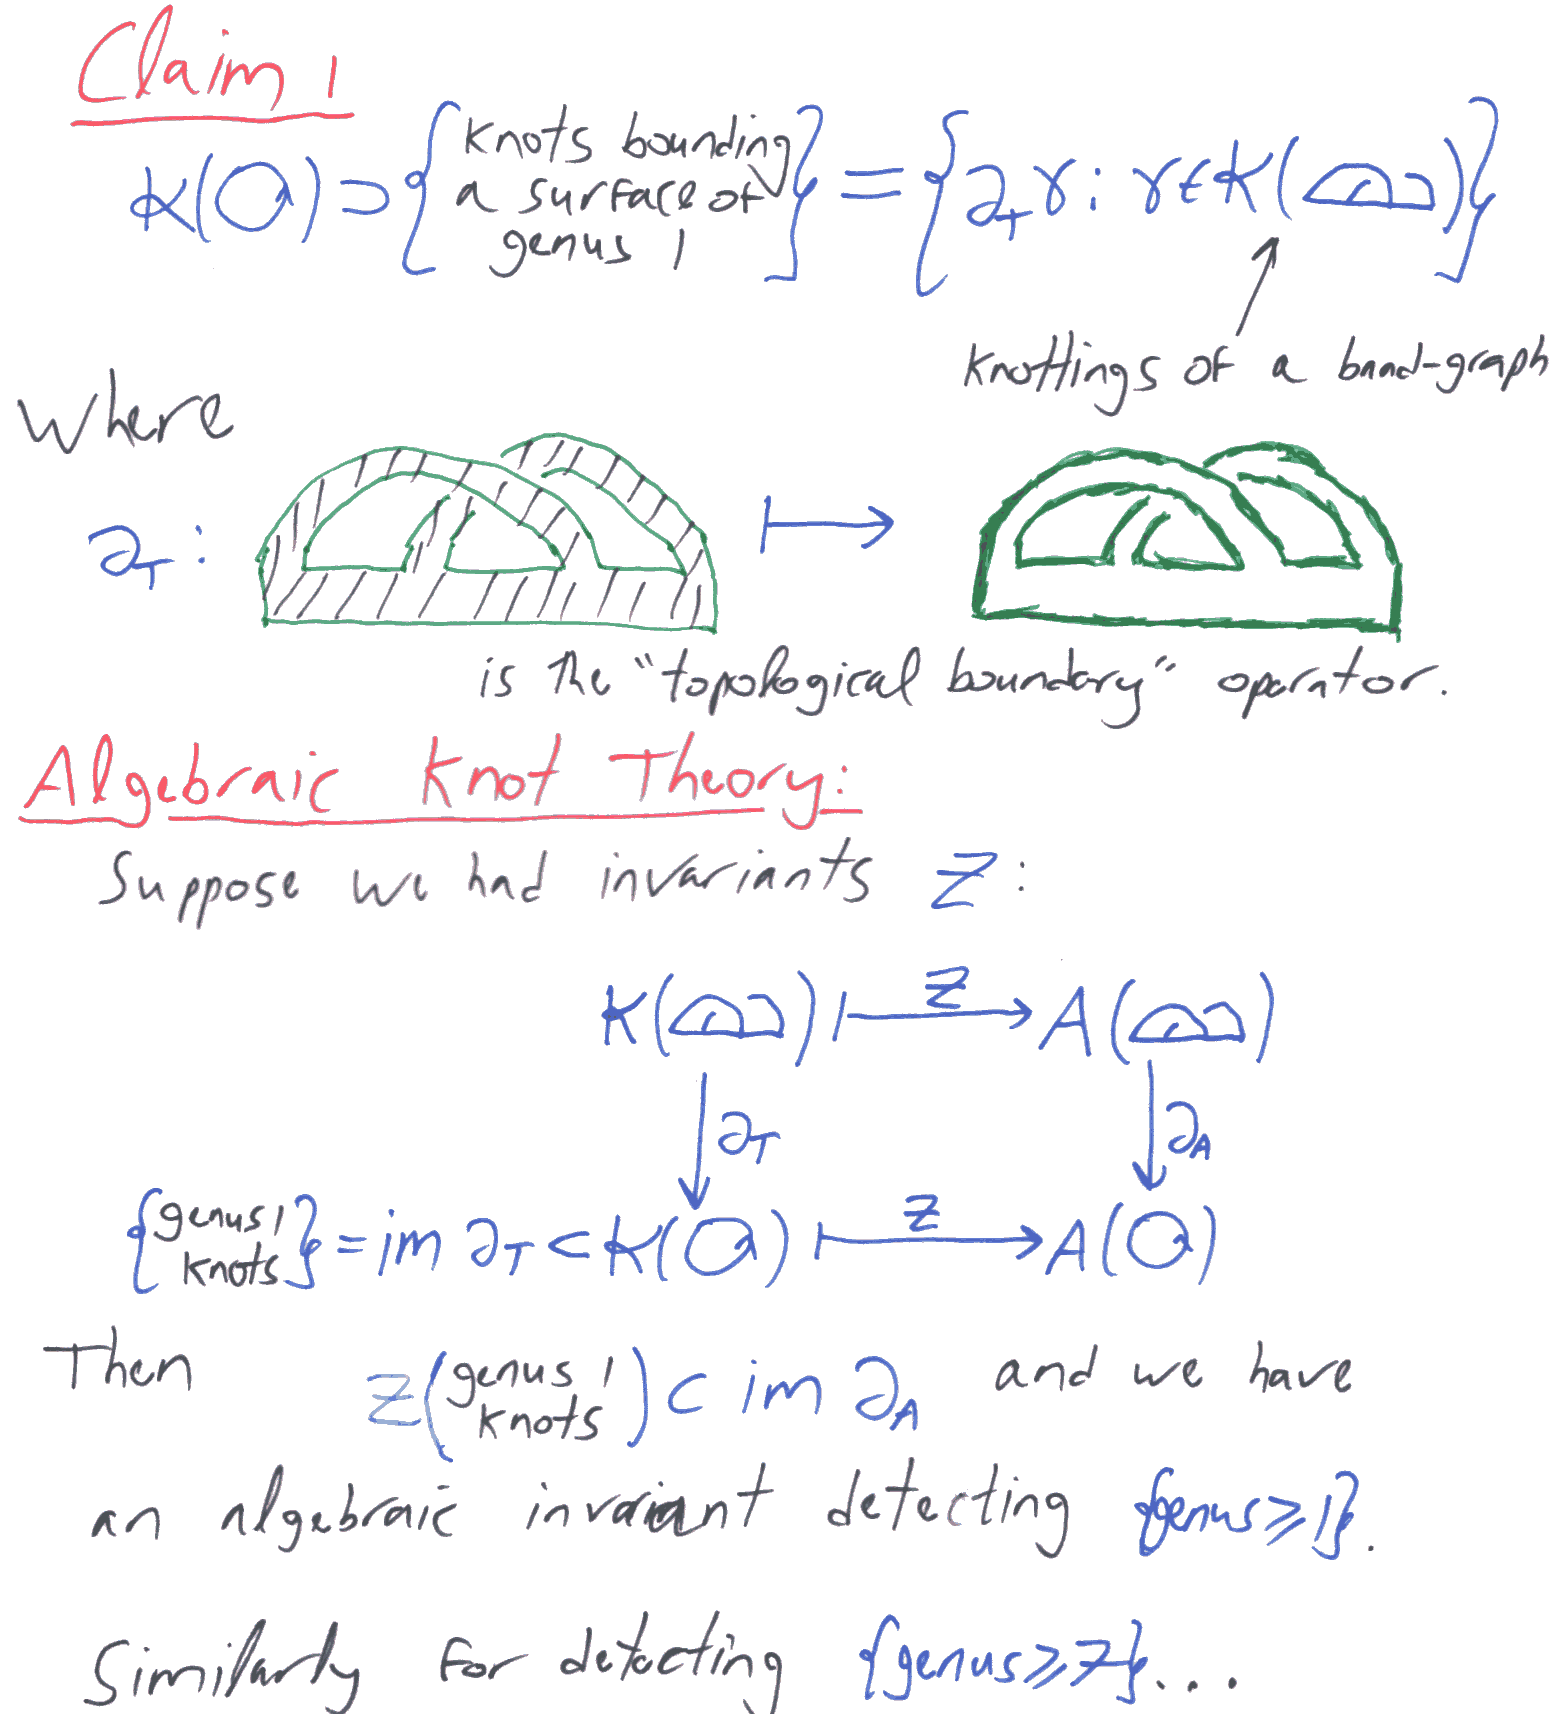 Claim 1
K(O) ⊃ { knots bounding a surface of genus 1 } = { ∂_T γ : γ ∈ K( ) }
Knottings of a band-graph
Where
∂_T : ↦
is the "topological boundary" operator.
Algebraic Knot Theory:
Suppose we had invariants Z:
K( ) ↦ Z A( )
∂_T ∂_A
{ genus 1 knots } = im ∂_T ⊂ K(O) ↦ Z A(O)
Then Z( genus 1 knots ) ⊂ im ∂_A and we have
an algebraic invariant detecting {genus ≥ 1}.
Similarly for detecting {genus ≥ 7}...